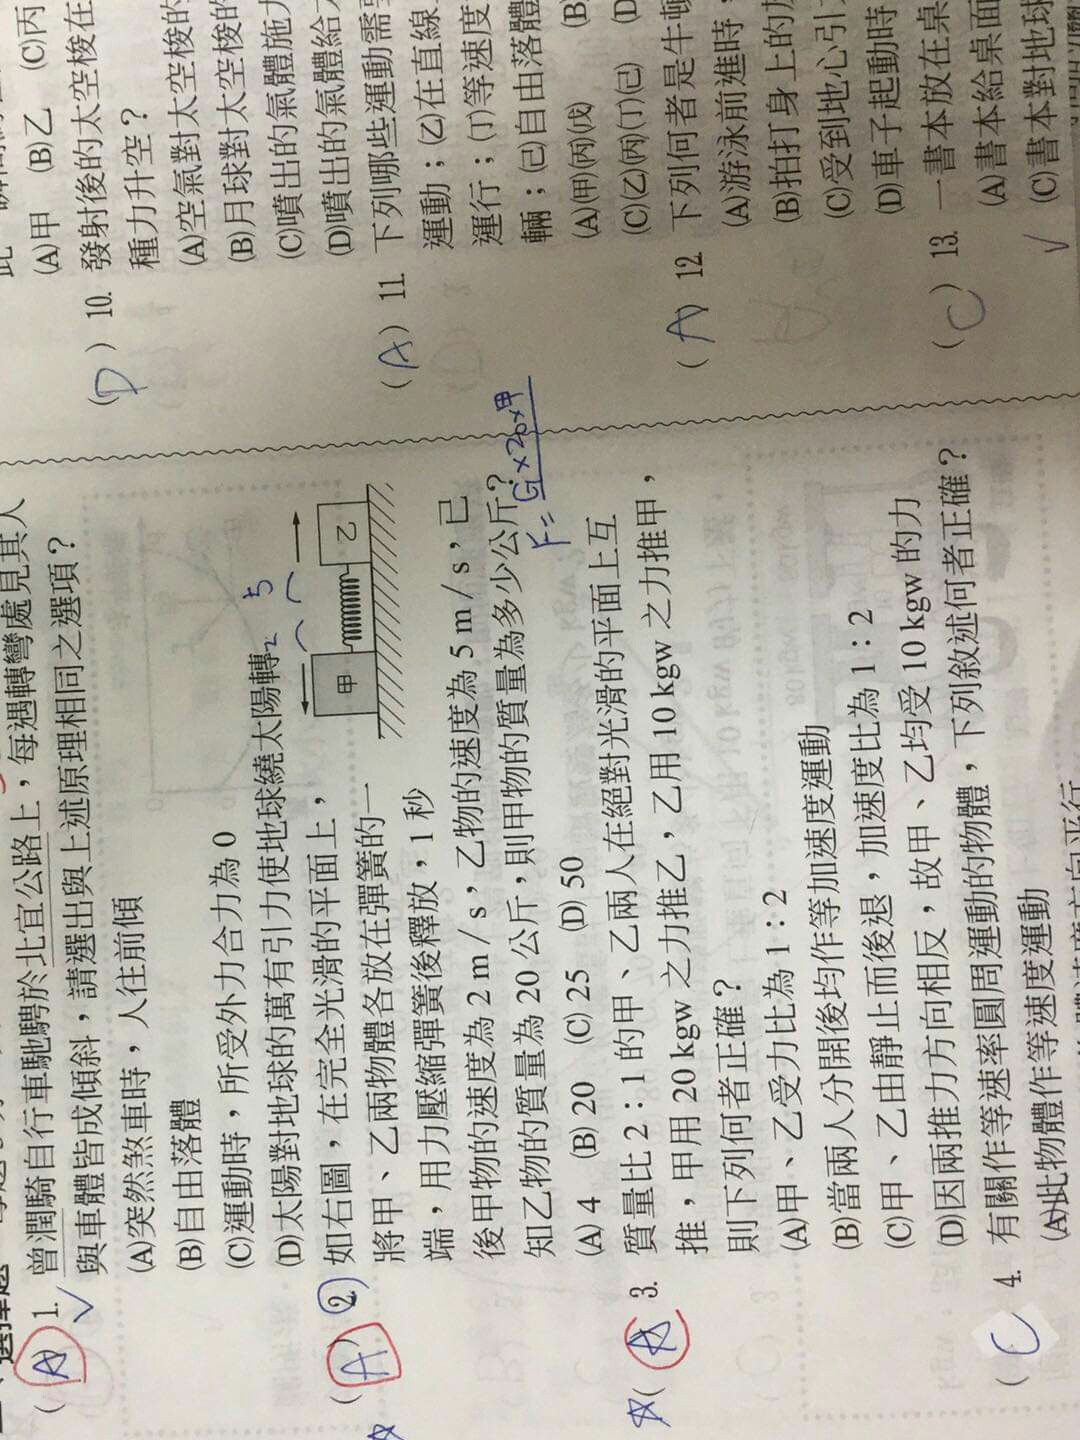 (A) 1. 曾潤騎自行車馳騁於北宜公路上，每遇轉彎處見其人
與車體皆成傾斜，請選出與上述原理相同之選項？
(A)突然煞車時，人往前傾
(B)自由落體
(C)運動時，所受外力合力為 0
(D)太陽對地球的萬有引力使地球繞太陽轉
(A) 2. 如右圖，在完全光滑的平面上，
將甲、乙兩物體各放在彈簧的一
端，用力壓縮彈簧後釋放，1 秒
後甲物的速度為 2 m / s，乙物的速度為 5 m / s，已
知乙物的質量為 20 公斤，則甲物的質量為多少公斤？
(A) 4 (B) 20 (C) 25 (D) 50
甲
乙
2
5
F = G×20×甲
(A) 3. 質量比 2：1 的甲、乙兩人在絕對光滑的平面上互
推，甲用 20 kgw 之力推乙，乙用 10 kgw 之力推甲，
則下列何者正確？
(A)甲、乙受力比為 1：2
(B)當兩人分開後均作等加速度運動
(C)甲、乙由靜止而後退，加速度比為 1：2
(D)因兩推力方向相反，故甲、乙均受 10 kgw 的力
(C) 4. 有關作等速率圓周運動的物體，下列敘述何者正確？
(A)此物體作等速度運動
(A)甲 (B)乙 (C)丙
(D) 10. 發射後的太空梭在
種力升空？
(A)空氣對太空梭的
(B)月球對太空梭的
(C)噴出的氣體施力
(D)噴出的氣體給
(A) 11. 下列哪些運動需要
運動；(乙)在直線
運行；(丁)等速度
輛；(己)自由落體
(A)(甲)(丙)(戊) (B)
(C)(乙)(丙)(丁)(己) (D)
(A) 12. 下列何者是牛頓
(A)游泳前進時，
(B)拍打身上的
(C)受到地心引
(D)車子起動時
(C) 13. 一書本放在桌
(A)書本給桌面
(C)書本對地球